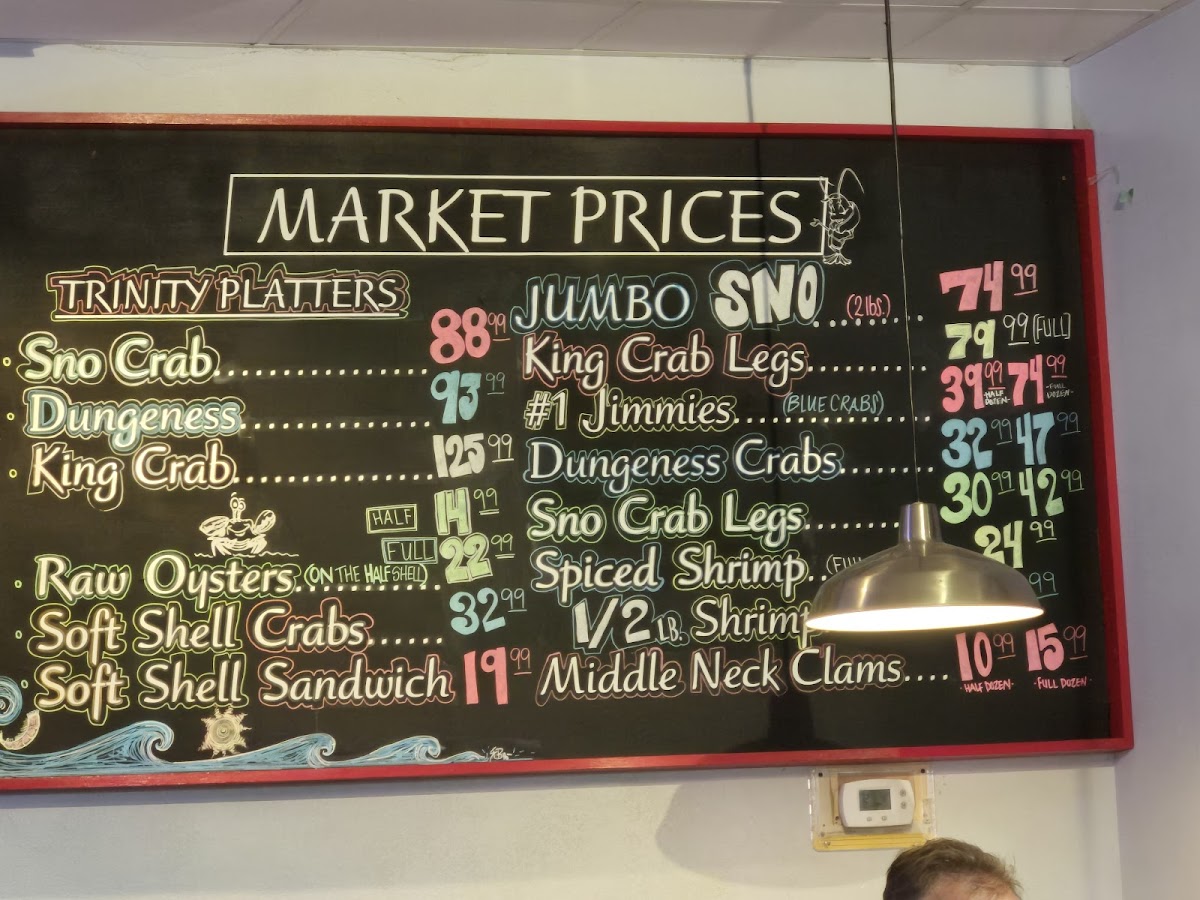 MARKET PRICES
TRINITY PLATTERS
Sno Crab.................... 88 99
Dungeness.................. 93 99
King Crab.................. 125 99
HALF 14 99
FULL 22 99
Raw Oysters (ON THE HALF SHELL)
Soft Shell Crabs...... 32 99
Soft Shell Sandwich 19 99
JUMBO SNO (2 lbs.) 74 99
King Crab Legs.......... 79 99 [FULL]
#1 Jimmies (BLUE CRABS) 39 99 HALF DOZEN 74 99 FULL DOZEN
Dungeness Crabs....... 32 99 47 99
Sno Crab Legs......... 30 99 42 99
Spiced Shrimp.. 24 99
1/2 LB. Shrimp 99
Middle Neck Clams.... 10 99 -HALF DOZEN- 15 99 -FULL DOZEN-